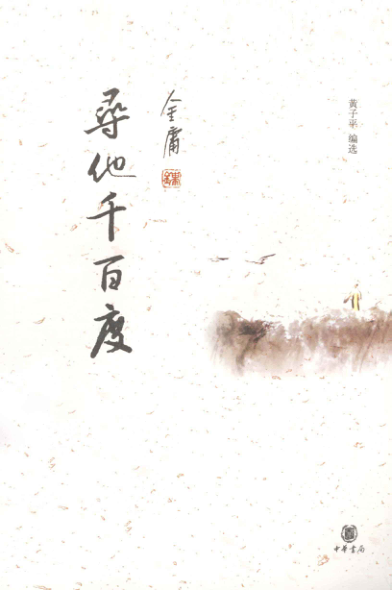 黄子平 编选
金庸
尋他千百度
中華書局